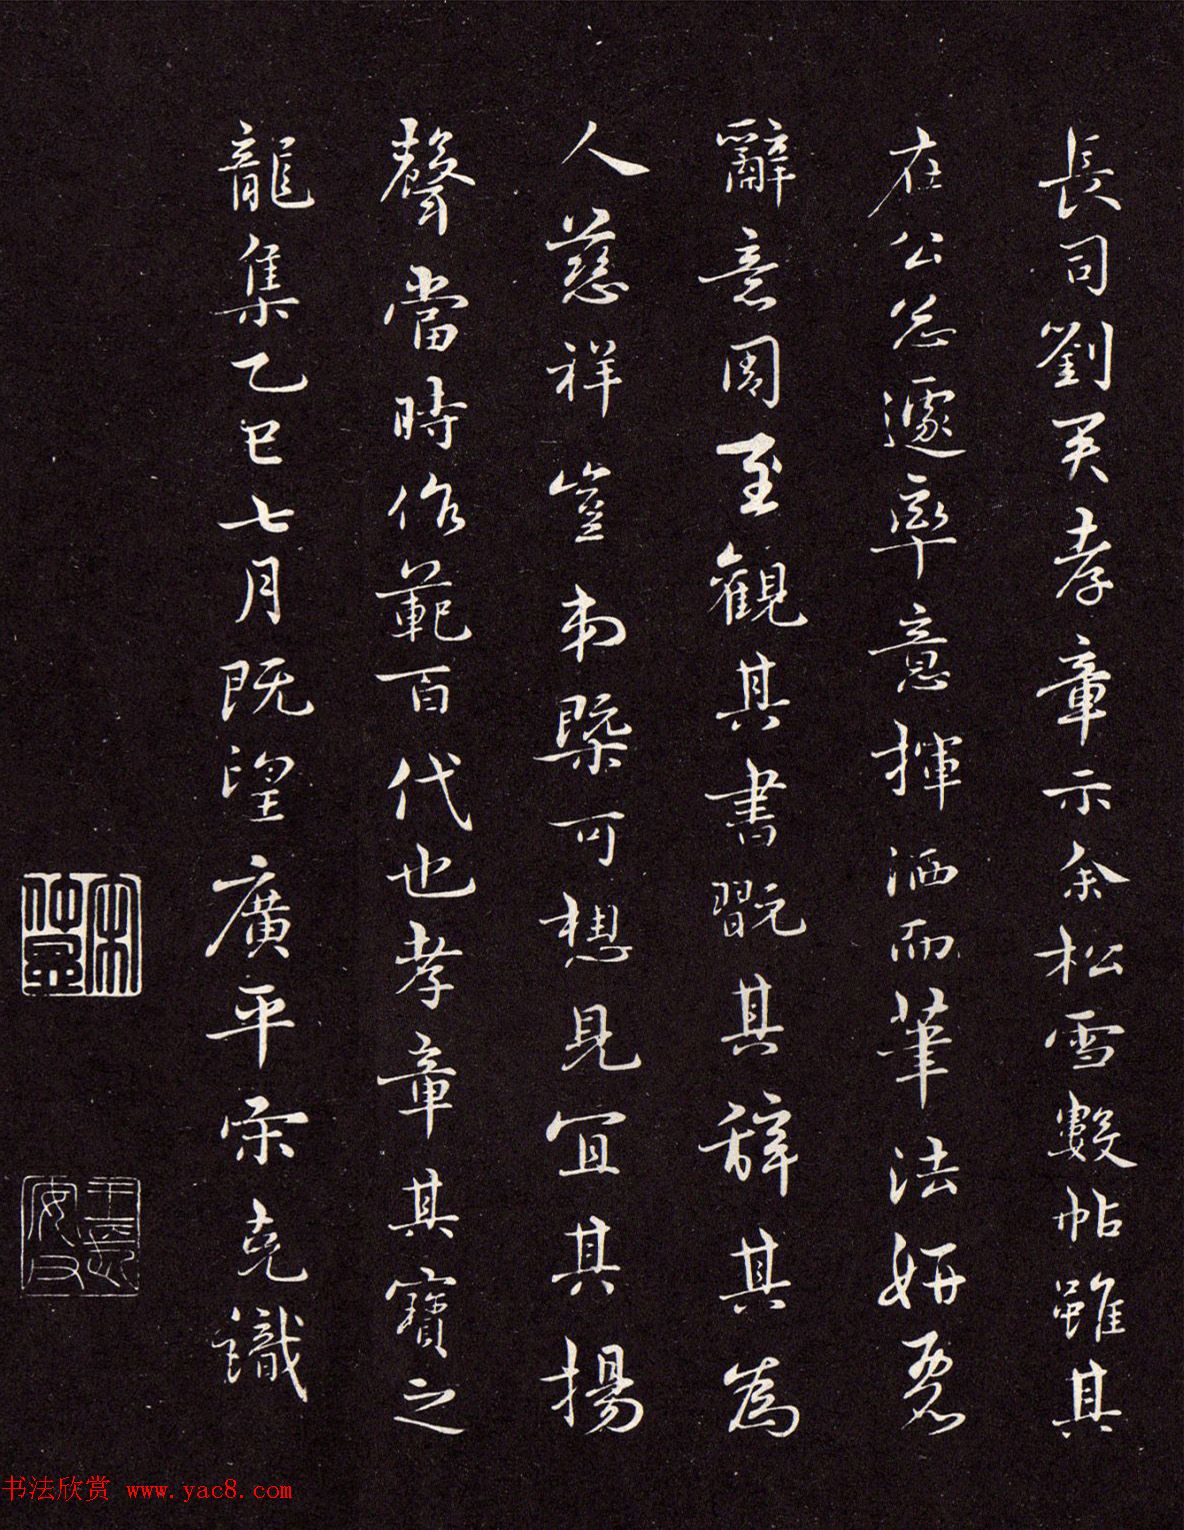 長司劉君孝章示余松雪數帖雖其
在公怱遽率意揮洒而筆法妍麗
辭意周至觀其書翫其辭其為
人慈祥豈弟槩可想見宜其揚
聲當時作範百代也孝章其寶之
龍集乙巳七月既望廣平宋克識
宋仲温
书法欣赏 www.yac8.com